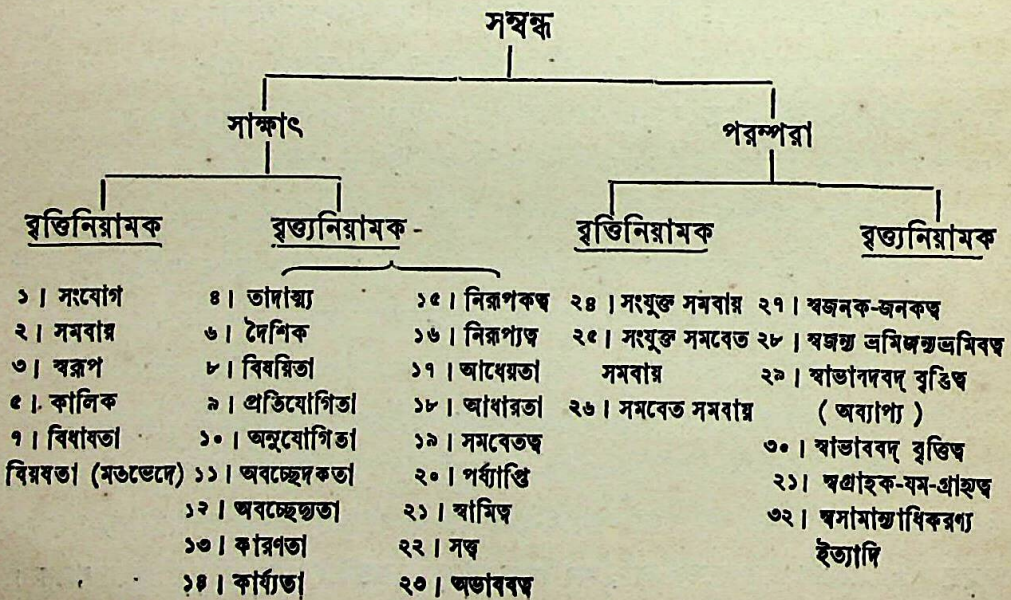 সম্বন্ধ
সাক্ষাৎ
পরম্পরা
বৃত্তিনিয়ামক
১। সংযোগ
২। সমবায়
৩। স্বরূপ
৫। কালিক
৭। বিধাষতা
বিয়ষতা (মতভেদে)
বৃত্ত্যনিয়ামক -
৪। তাদাত্ম্য
৬। দৈশিক
৮। বিষয়িতা
৯। প্রতিযোগিতা
১০। অনুযোগিতা
১১। অবচ্ছেদকতা
১২। অবচ্ছেদ্যতা
১৩। কারণতা
১৪। কার্য্যতা
১৫। নিরূপকত্ব
১৬। নিরূপ্যত্ব
১৭। আধেয়তা
১৮। আধারতা
১৯। সমবেতত্ব
২০। পর্য্যাপ্তি
২১। স্বামিত্ব
২২। সত্ত্ব
২৩। অভাববত্ব
বৃত্তিনিয়ামক
২৪। সংযুক্ত সমবায়
২৫। সংযুক্ত সমবেত
সমবায়
২৬। সমবেত সমবায়
বৃত্ত্যনিয়ামক
২৭। স্বজনক-জনকত্ব
২৮। স্বজন্য ভ্রমিজন্যভ্রমিবত্ব
২৯। স্বাভানদবদ্ বৃত্তিত্ব
( অব্যাপ্য )
৩০। স্বাভাববদ্ বৃত্তিত্ব
২১। স্বগ্রাহক-যম-গ্রাহ্যত্ব
৩২। স্বসামান্যাধিকরণ্য
ইত্যাদি